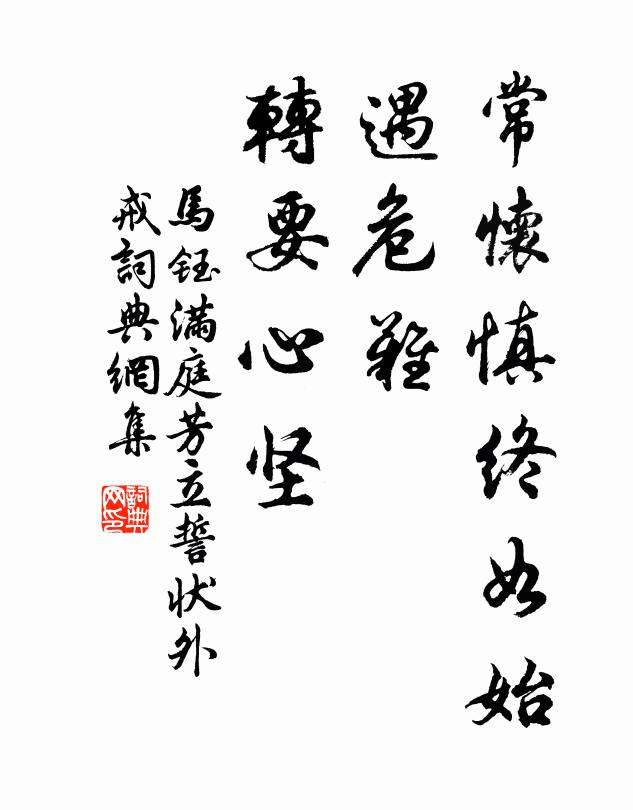 常懷慎終如始
遇危難
轉要心坚
馬鈺滿庭芳立誓状外
戒詞典網集
詞典
网印